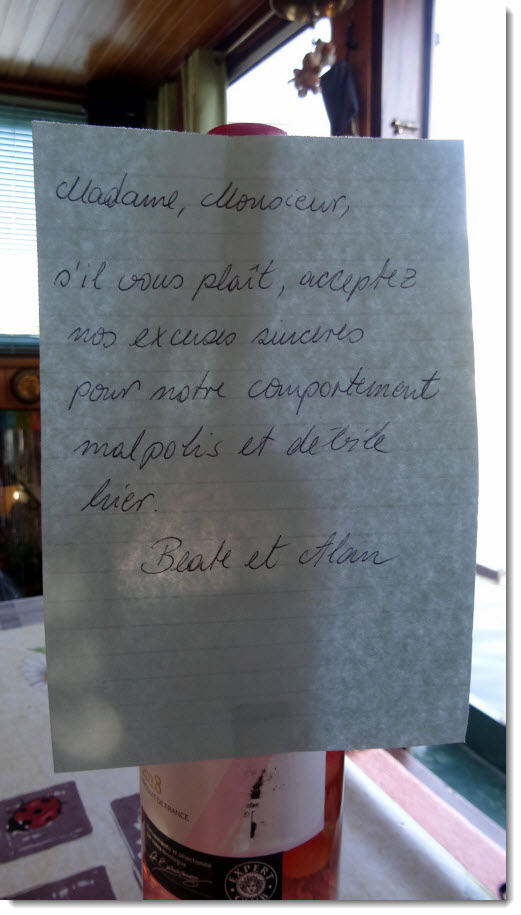 Madame, Monsieur,
s'il vous plaît, acceptez
nos excuses sinceres
pour notre comportement
malpolis et débile
hier.
Beate et Alan
2018
DE FRANCE
et sélectionné
EXPERT
CLUB